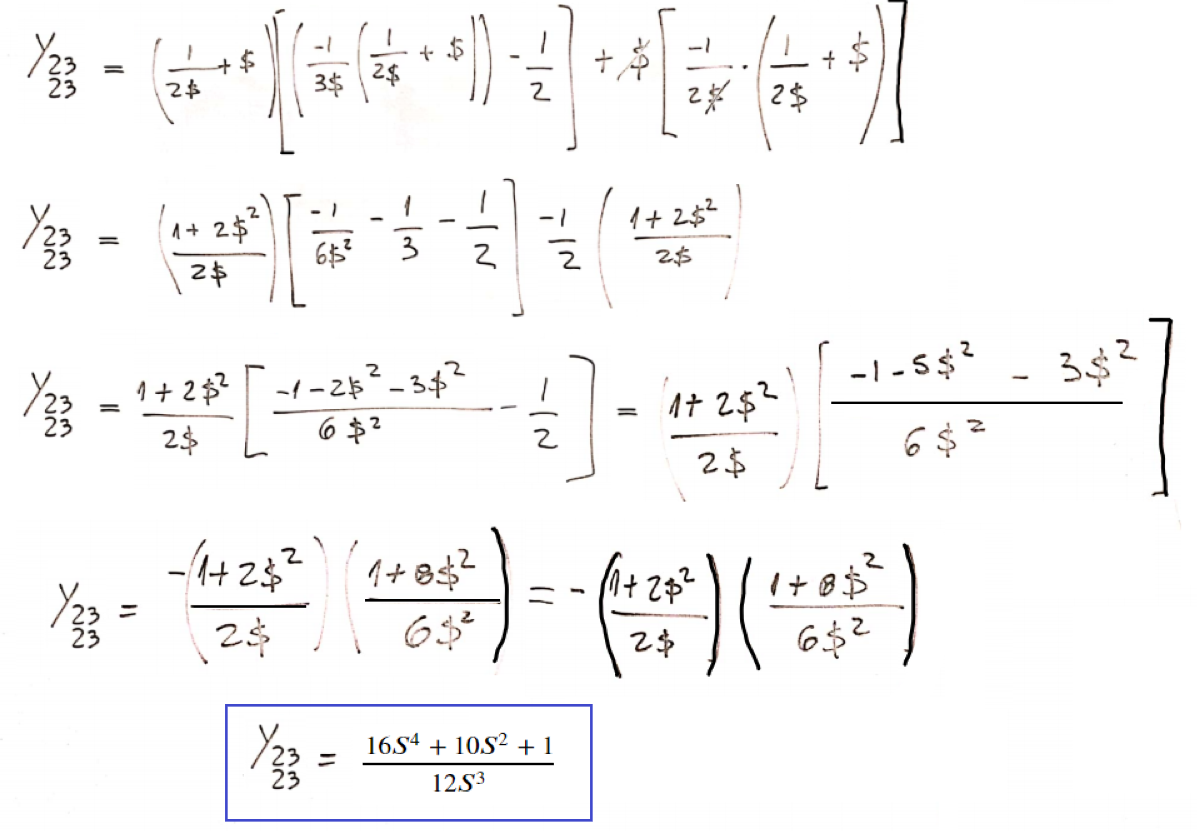 Y₂₃²³ = (1/2$ + $)[(-1/3$ (1/2$ + $)) - 1/2] + $[-1/2$ · (1/2$ + $)]
Y₂₃²³ = ((1 + 2$²)/2$)[-1/6$² - 1/3 - 1/2] -1/2 ((1 + 2$²)/2$)
Y₂₃²³ = (1 + 2$²)/2$ [(-1 - 2$² - 3$²)/6$² - 1/2] = ((1 + 2$²)/2$)[(-1 - 5$² - 3$²)/6$²]
Y₂₃²³ = -((1 + 2$²)/2$)((1 + 8$²)/6$²) = -((1 + 2$²)/2$)((1 + 8$²)/6$²)
Y₂₃²³ = (16S⁴ + 10S² + 1)/12S³